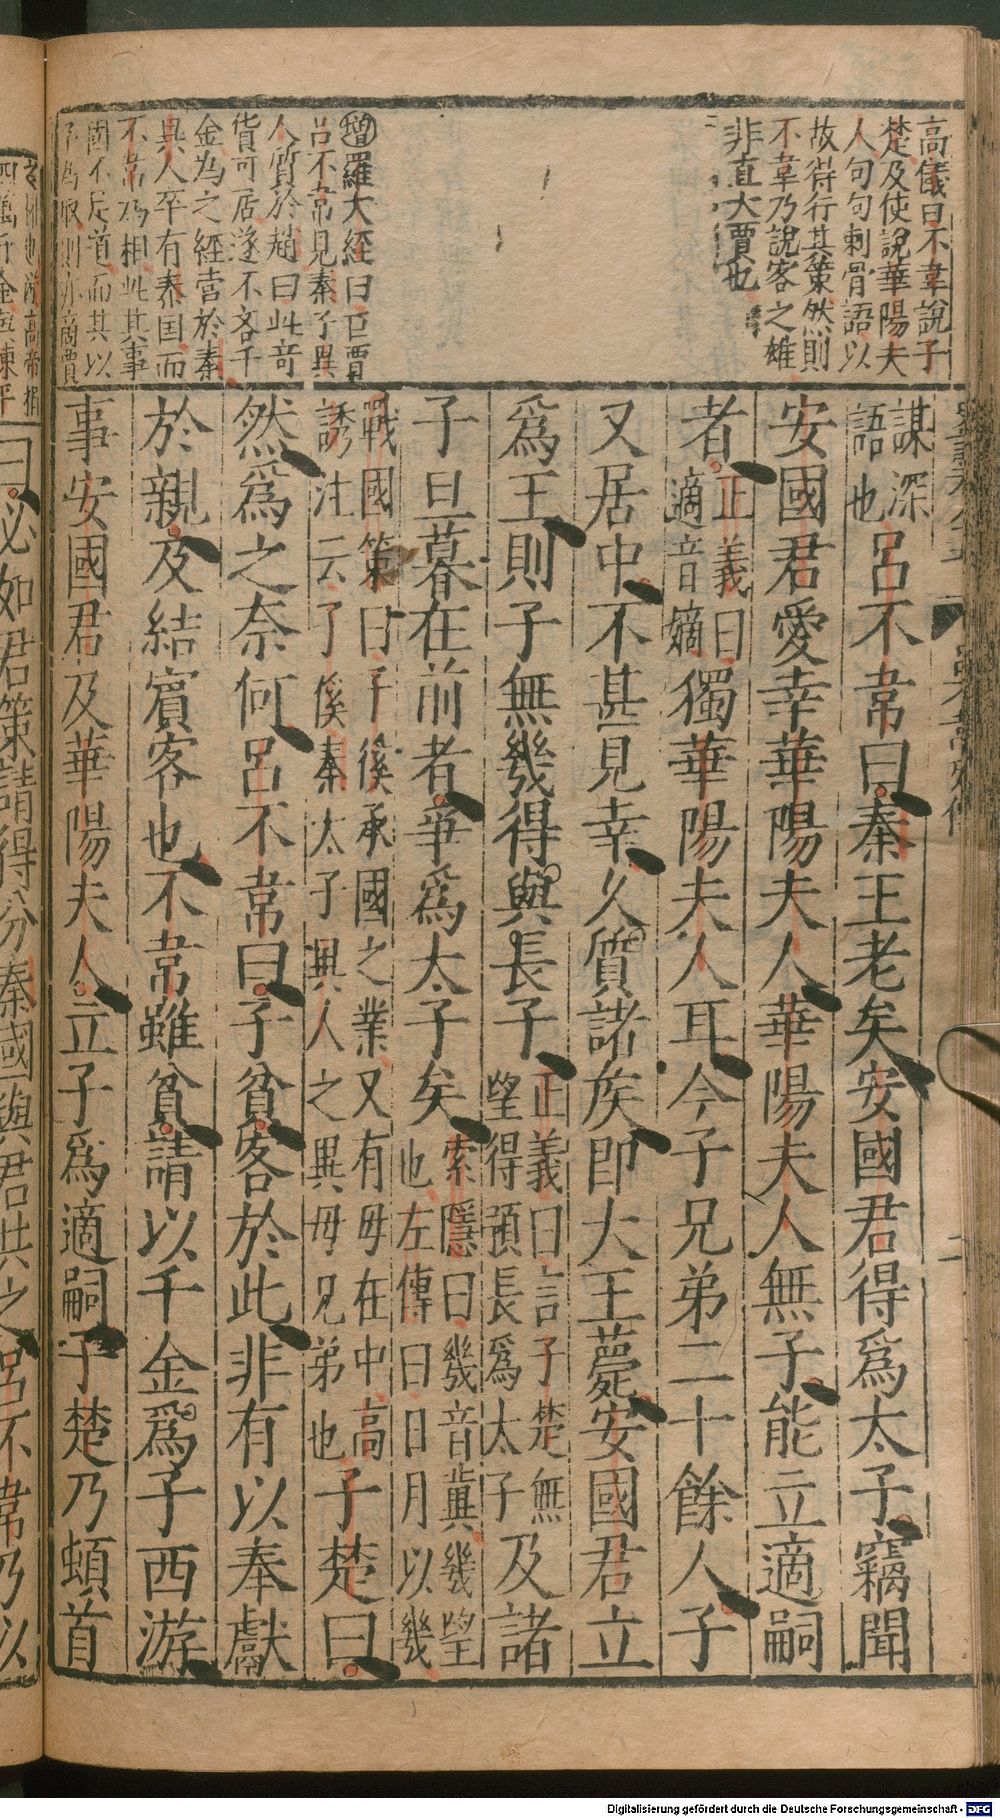 高儀曰不韋說子
楚及使說華陽夫
人句句刺骨語以
故得行其策然則
不韋乃說客之雄
非直大賈也
增羅大經曰巨賈
呂不韋見秦子異
人質於趙曰此奇
貨可居遂不吝千
金為之經營於秦
異人卒有秦国而
不韋乃相此其事
國不足道而其以
謀深
語也
呂不韋曰秦王老矣安國君得爲太子竊聞
安國君愛幸華陽夫人華陽夫人無子能立適嗣
者
正義曰
適音嫡
獨華陽夫人耳今子兄弟二十餘人子
又居中不甚見幸久質諸矦即大王薨安國君立
爲王則子無幾得與長子
正義曰言子楚無
望得預長爲太子
及諸
子旦暮在前者爭爲太子矣
索隱曰幾音冀幾望
也左傳曰日月以幾
戰國策曰子傒承國之業又有毋在中高
誘注云了傒秦太子異人之異毋兄弟也
子楚曰
然爲之奈何呂不韋曰子貧客於此非有以奉獻
於親及結賓客也不韋雖貧請以千金爲子西游
事安國君及華陽夫人立子爲適嗣子楚乃頓首
曰必如君策請得分秦國與君共之呂不韋乃以
Digitalisierung gefördert durch die Deutsche Forschungsgemeinschaft - DFG